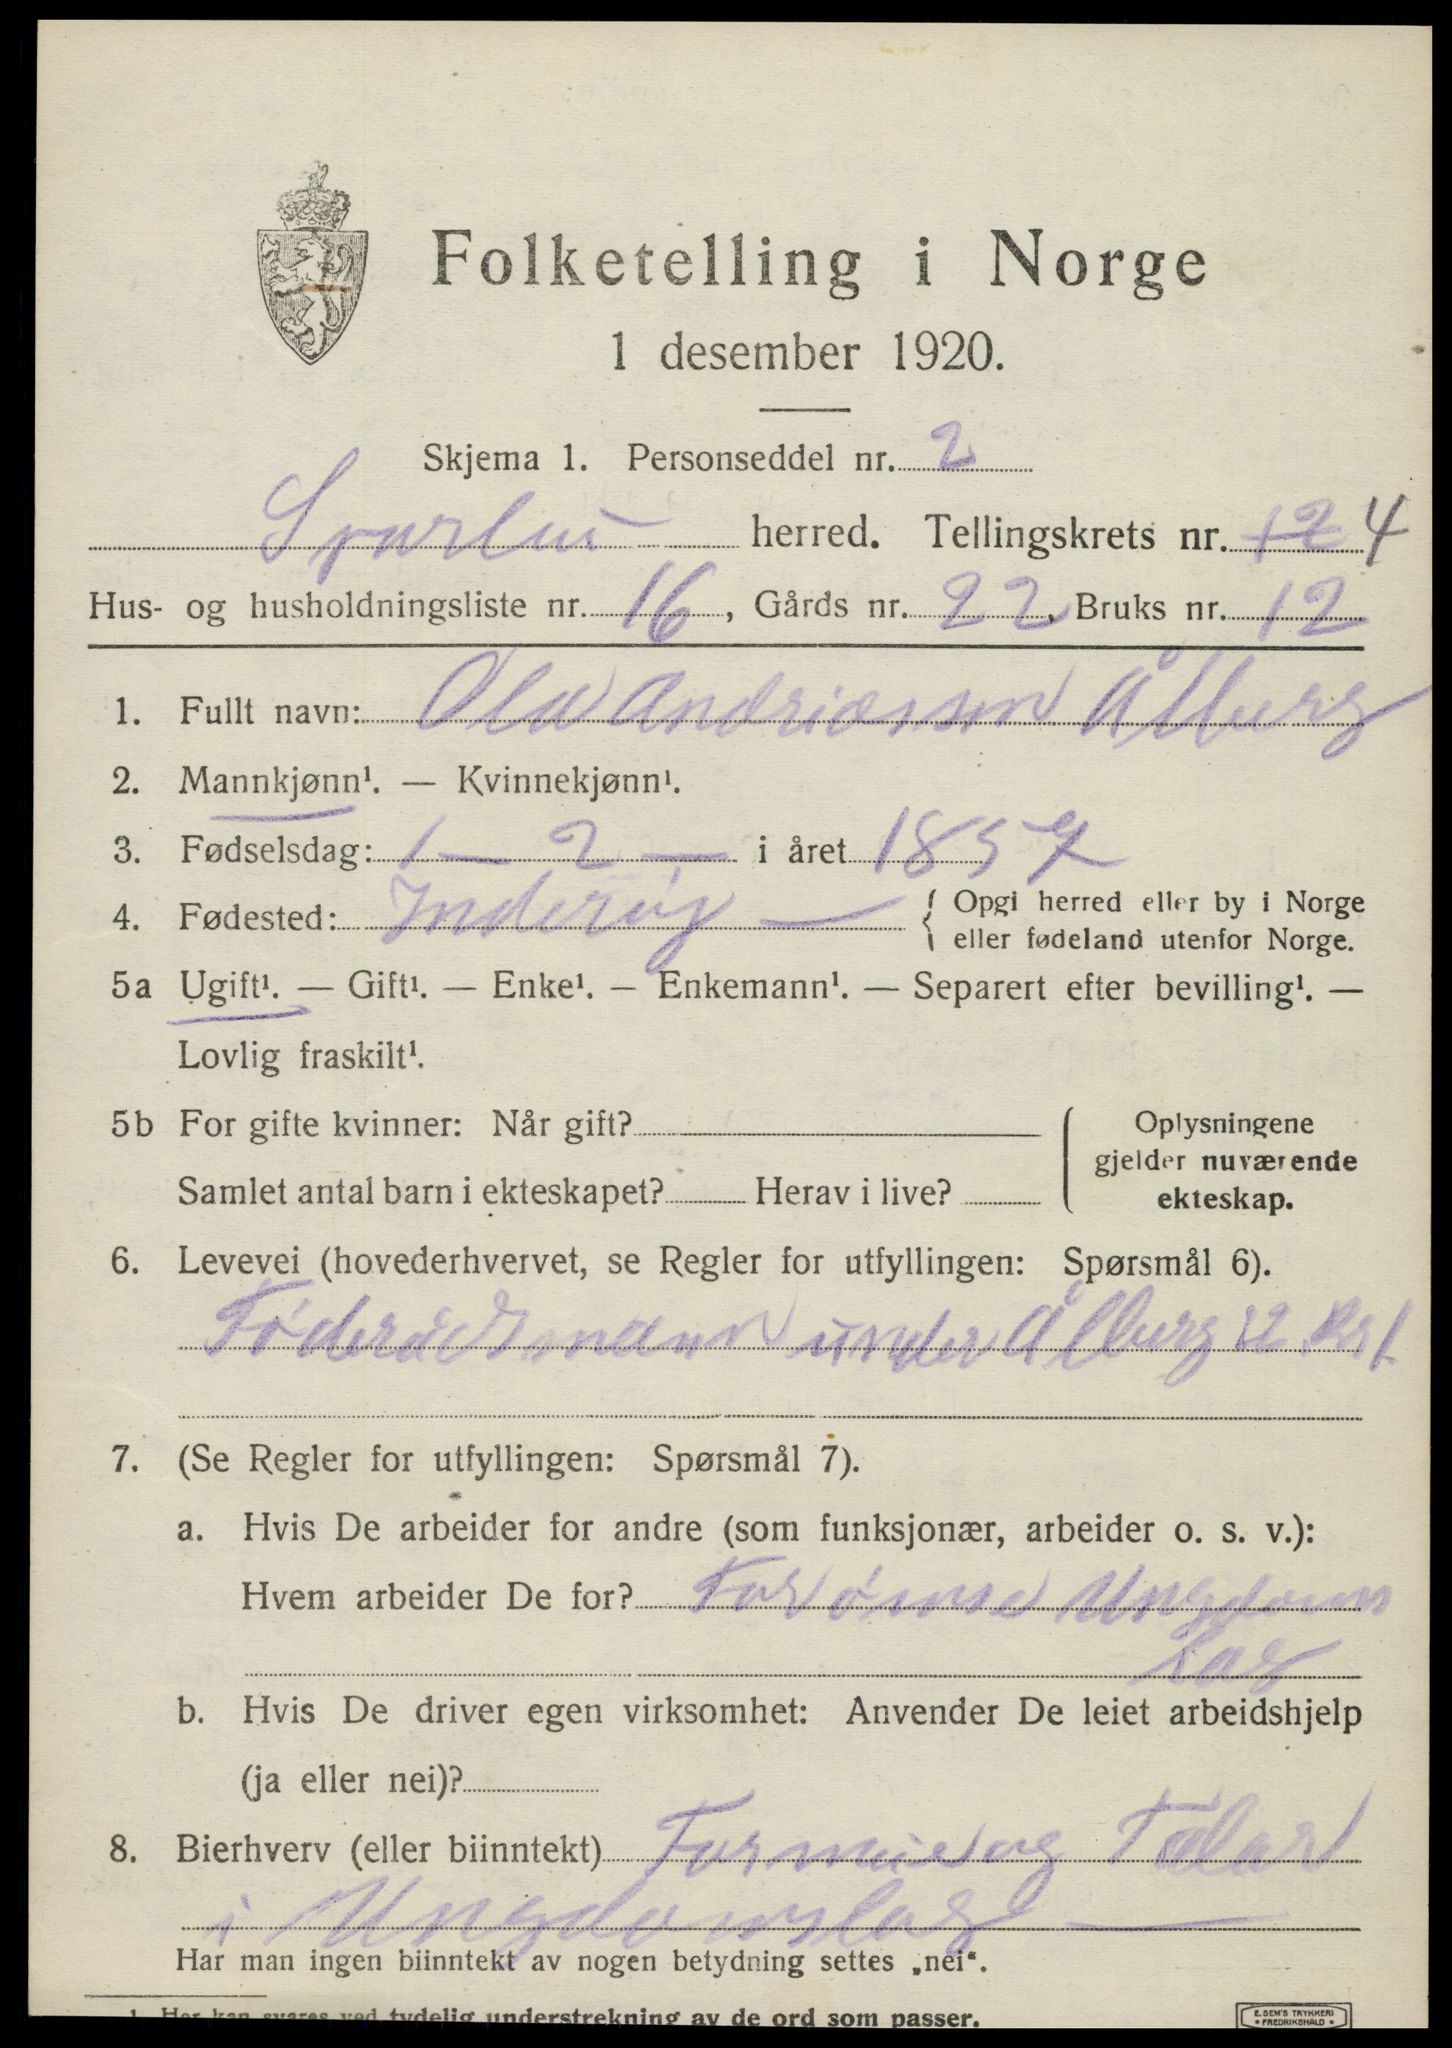 Folketelling i Norge
1 desember 1920.
Skjema 1. Personseddel nr. 2
Sparbu herred. Tellingskrets nr. 12 4
Hus- og husholdningsliste nr. 16, Gårds nr. 22, Bruks nr. 12
1. Fullt navn: Ola Andriassen Ålberg
2. Mannkjønn¹. — Kvinnekjønn¹.
3. Fødselsdag: 1 — 2 — i året 1857
4. Fødested: Inderøy — { Opgi herred eller by i Norge
eller fødeland utenfor Norge.
5a Ugift¹. — Gift¹. — Enke¹. — Enkemann¹. — Separert efter bevilling¹. —
Lovlig fraskilt¹.
5b For gifte kvinner: Når gift?
Samlet antal barn i ekteskapet? Herav i live?
Oplysningene
gjelder nuværende
ekteskap.
6. Levevei (hovederhvervet, se Regler for utfyllingen: Spørsmål 6).
Føderådsmann under Ålberg 22
7. (Se Regler for utfyllingen: Spørsmål 7).
a. Hvis De arbeider for andre (som funksjonær, arbeider o. s. v.):
Hvem arbeider De for? For Ungdoms
Lag
b. Hvis De driver egen virksomhet: Anvender De leiet arbeidshjelp
(ja eller nei)?
8. Bierhverv (eller biinntekt) Formue og
i Ungdomslag —
Har man ingen biinntekt av nogen betydning settes „nei“.
1. Her kan svares ved tydelig understrekning av de ord som passer.
E. SEM'S TRYKKERI
* FREDRIKSHALD *